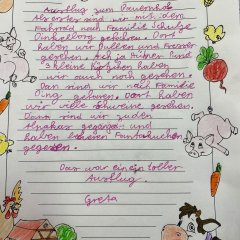 Ausflug zum Bauernhof
Als erstes sind wir mit dem
Fahrrad nach Familie Schulze
gefahren. Dort
haben wir Bullen und Fresser
gesehen. Ach ja Hühner und
3 kleine Kätzchen haben
wir auch noch gesehen.
Dan sind wir nach Familie
Ding gefahren. Dort haben
wir viele Schweine gesehen.
Dann sind wir zu den
Alpakas gegangen und
haben leckeren
gegessen.
Das war ein toller
Ausflug.
Greta